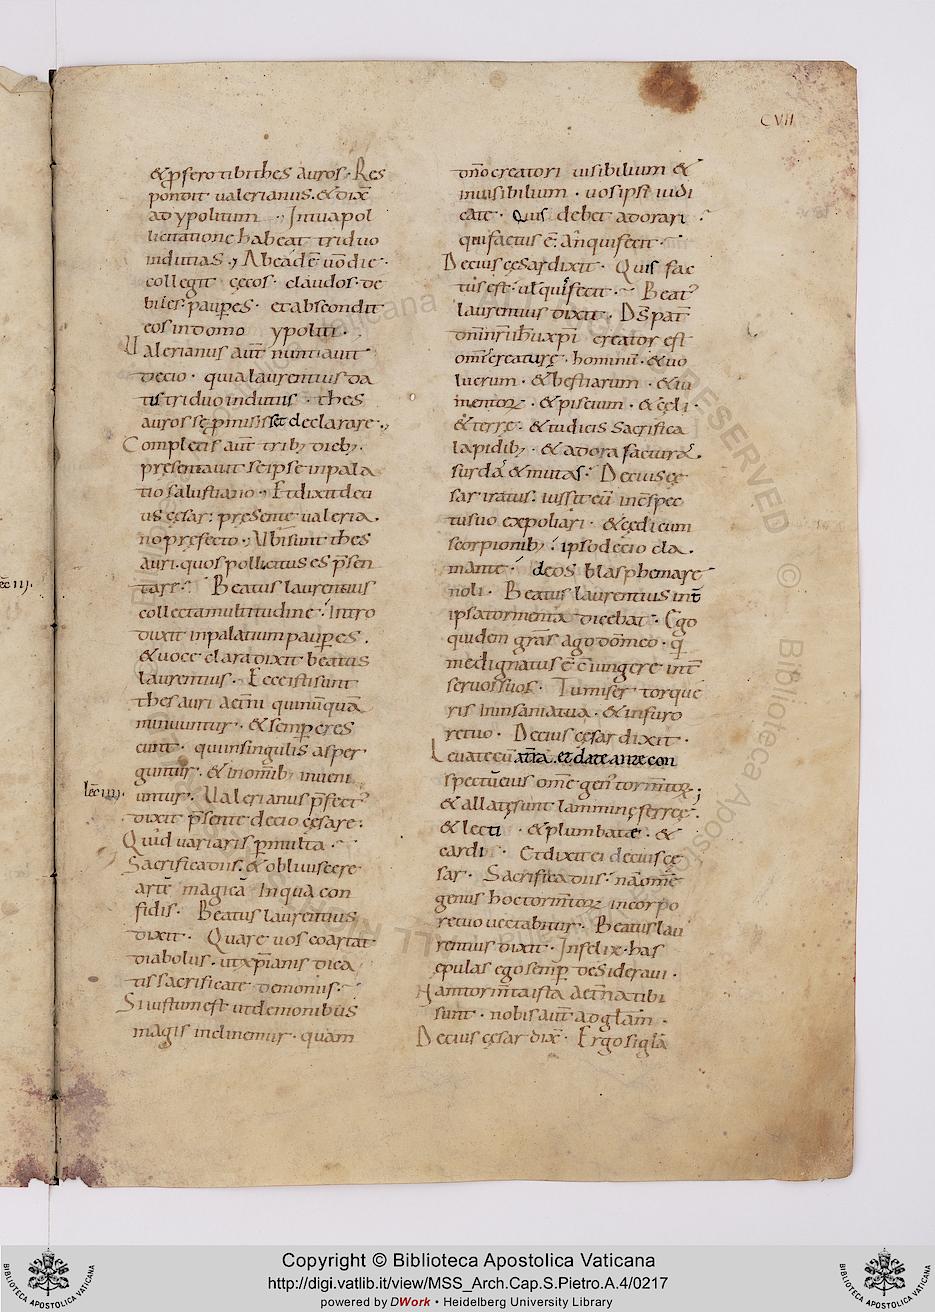 CVII
& p̄sero tibi thesauros · Res
pondit valerianus · & dix̄
ad ypolitum · Intua pol
licitatione habeat triduo
indutias · Ab eadē ū die ·
collegit cęcos · claudos · de
biles · paup̄es · et abscondit
eos in domo ypoliti ·
Valerianus aūt nuntiavit
decio · quia laurentius da
tis triduo indutiis · thes
auros sę p̄misisset declarare ·
Completis aūt trib; dieb; ·
presentavit seipse in pala
tio salustiano · Et dixit deci
us cęsar : pręsente valeria
no pręfecto · Ubi sunt thes
auri · quos pollicitus es p̄sen
tare · Beatus laurentius
collecta multitudine · Intro
duxit in palatium paup̄es ·
& voce clara dixit beatus
laurentius · Ecce isti sunt
thesauri aet̄ni qui nūquā
minuuntur · & semp̄ cres
cunt · qui in singulis asper
guntur · & in om̄ib; inveni
lēc iiij.
untur · Valerianus p̄fect᾽
dixit p̄sente decio cęsare :
Quid variaris p̄ multa ·
Sacrifica diis · & obliviscere
artē magicā in qua con
fidis · Beatus laurentius
dixit · Quare vos coartat
diabolus · ut xp̄ianis dica
tis sacrificate demoniis ·
Si iustum est ut demonibus
magis inclinemur · quam
lēc iij.
dn̄o creatori visibilium &
invisibilium · vos ipsi iudi
cate · Quis debet adorari ·
qui factus ē · an qui fecit ·
Decius cęsar dixit · Quis fac
tus est · ul̄ qui fecit · Beat᾽
laurentius dixit · Ds̄ pat̄
dn̄i nr̄i ihū xp̄i creator est
om̄is creaturę · hominū · & vo
lucrum · & bestiarum · & iu
mentorꝝ · & piscium · & cęli ·
& terrę · & tu dicis sacrifica
lapidib; · & adora facturā ·
surdā & mutas · Decius cę
sar iratus · iussit eū in c̄spec
tu suo expoliari · & cędi cum
scorpionib; · ipso decio cla
mante · deos blasphemare
noli · Beatus laurentius int̄
ipsa tormenta dicebat · Ego
quidem gr̄as ago dō meo · q̄
me dignatus ē c̄iungere int̄
servos suos · Tu miser torque
ris in insania tua · & in furo
re tuo · Decius cęsar dixit ·
Levate eū a tr̄a · et date ante con
spectū eius om̄e gen᾽ torm̄torꝝ ·
& allatę sunt lamminę ferreę ·
& lecti · & plumbatę · &
cardi · Et dixit ei decius cę
sar · Sacrifica diis · nā om̄e
genus hoc torm̄torꝝ in corpo
re tuo vectabitur · Beatus lau
rentius dixit · Infelix · has
epulas ego semp̄ desideravi ·
Nam torm̄ta ista aet̄na tibi
sunt · nobis aūt ad gl̄am ·
Decius cęsar dix̄ · Ergo si gl̄a
Copyright © Biblioteca Apostolica Vaticana
http://digi.vatlib.it/view/MSS_Arch.Cap.S.Pietro.A.4/0217
powered by DWork • Heidelberg University Library